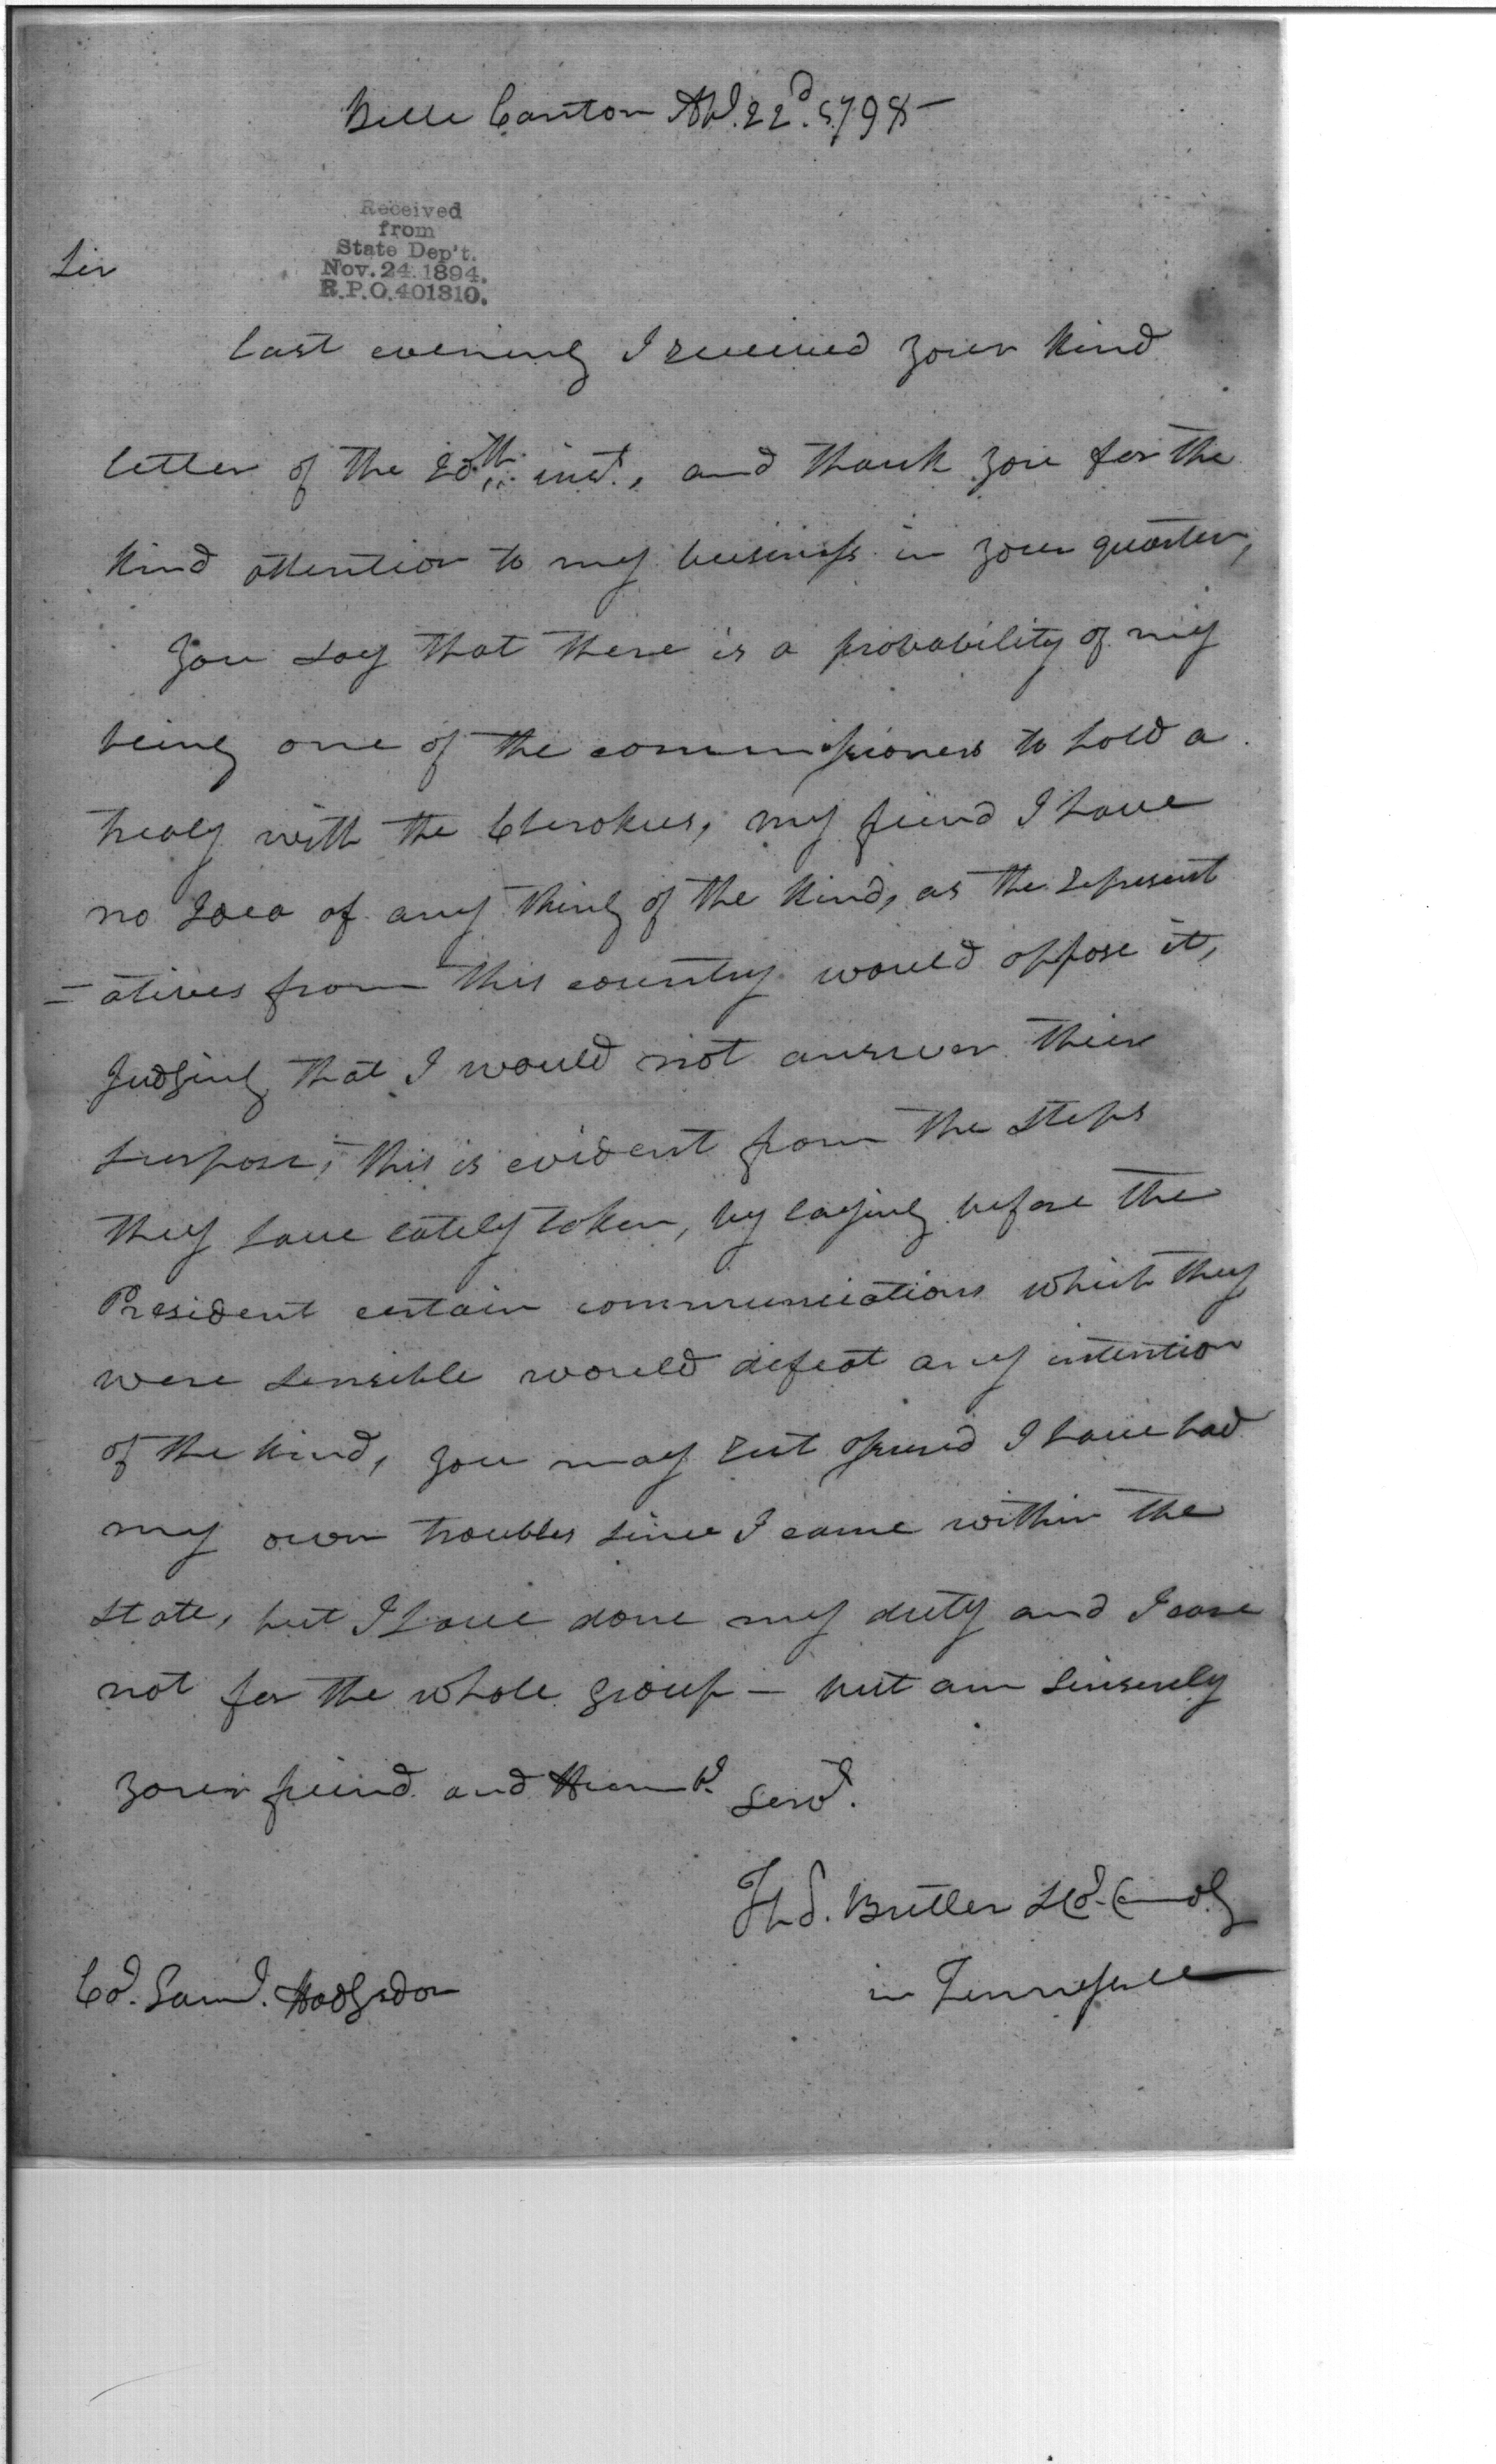 Belle Canton Apl. 22d. 1798 –
Received
from
State Dep't.
Nov. 24. 1894.
R.P.O. 401310.
Sir
last evening I received your kind
letter of the inst., and thank you for the
kind attention to my business in your quarter,
you say that there is a probability of my
being one of the commissioners to hold a
treaty with the Cherokees, my friend I have
no Idea of any thing of the kind, as the represent
=atives from this country would oppose it,
Judging that I would not answer their
purpose, this is evident from the steps
they have lately taken, by laying before the
President certain communications which they
were sensible would defeat any intention
of the kind, you may rest assured I have had
my own troubles since I came within the
state, but I have done my duty and I care
not for the whole group – but am sincerely
your friend and Humbl. Servt.
Ths. Butler Lt Col. Comdg
in Tennessee
Col. Saml. Hodgsdon